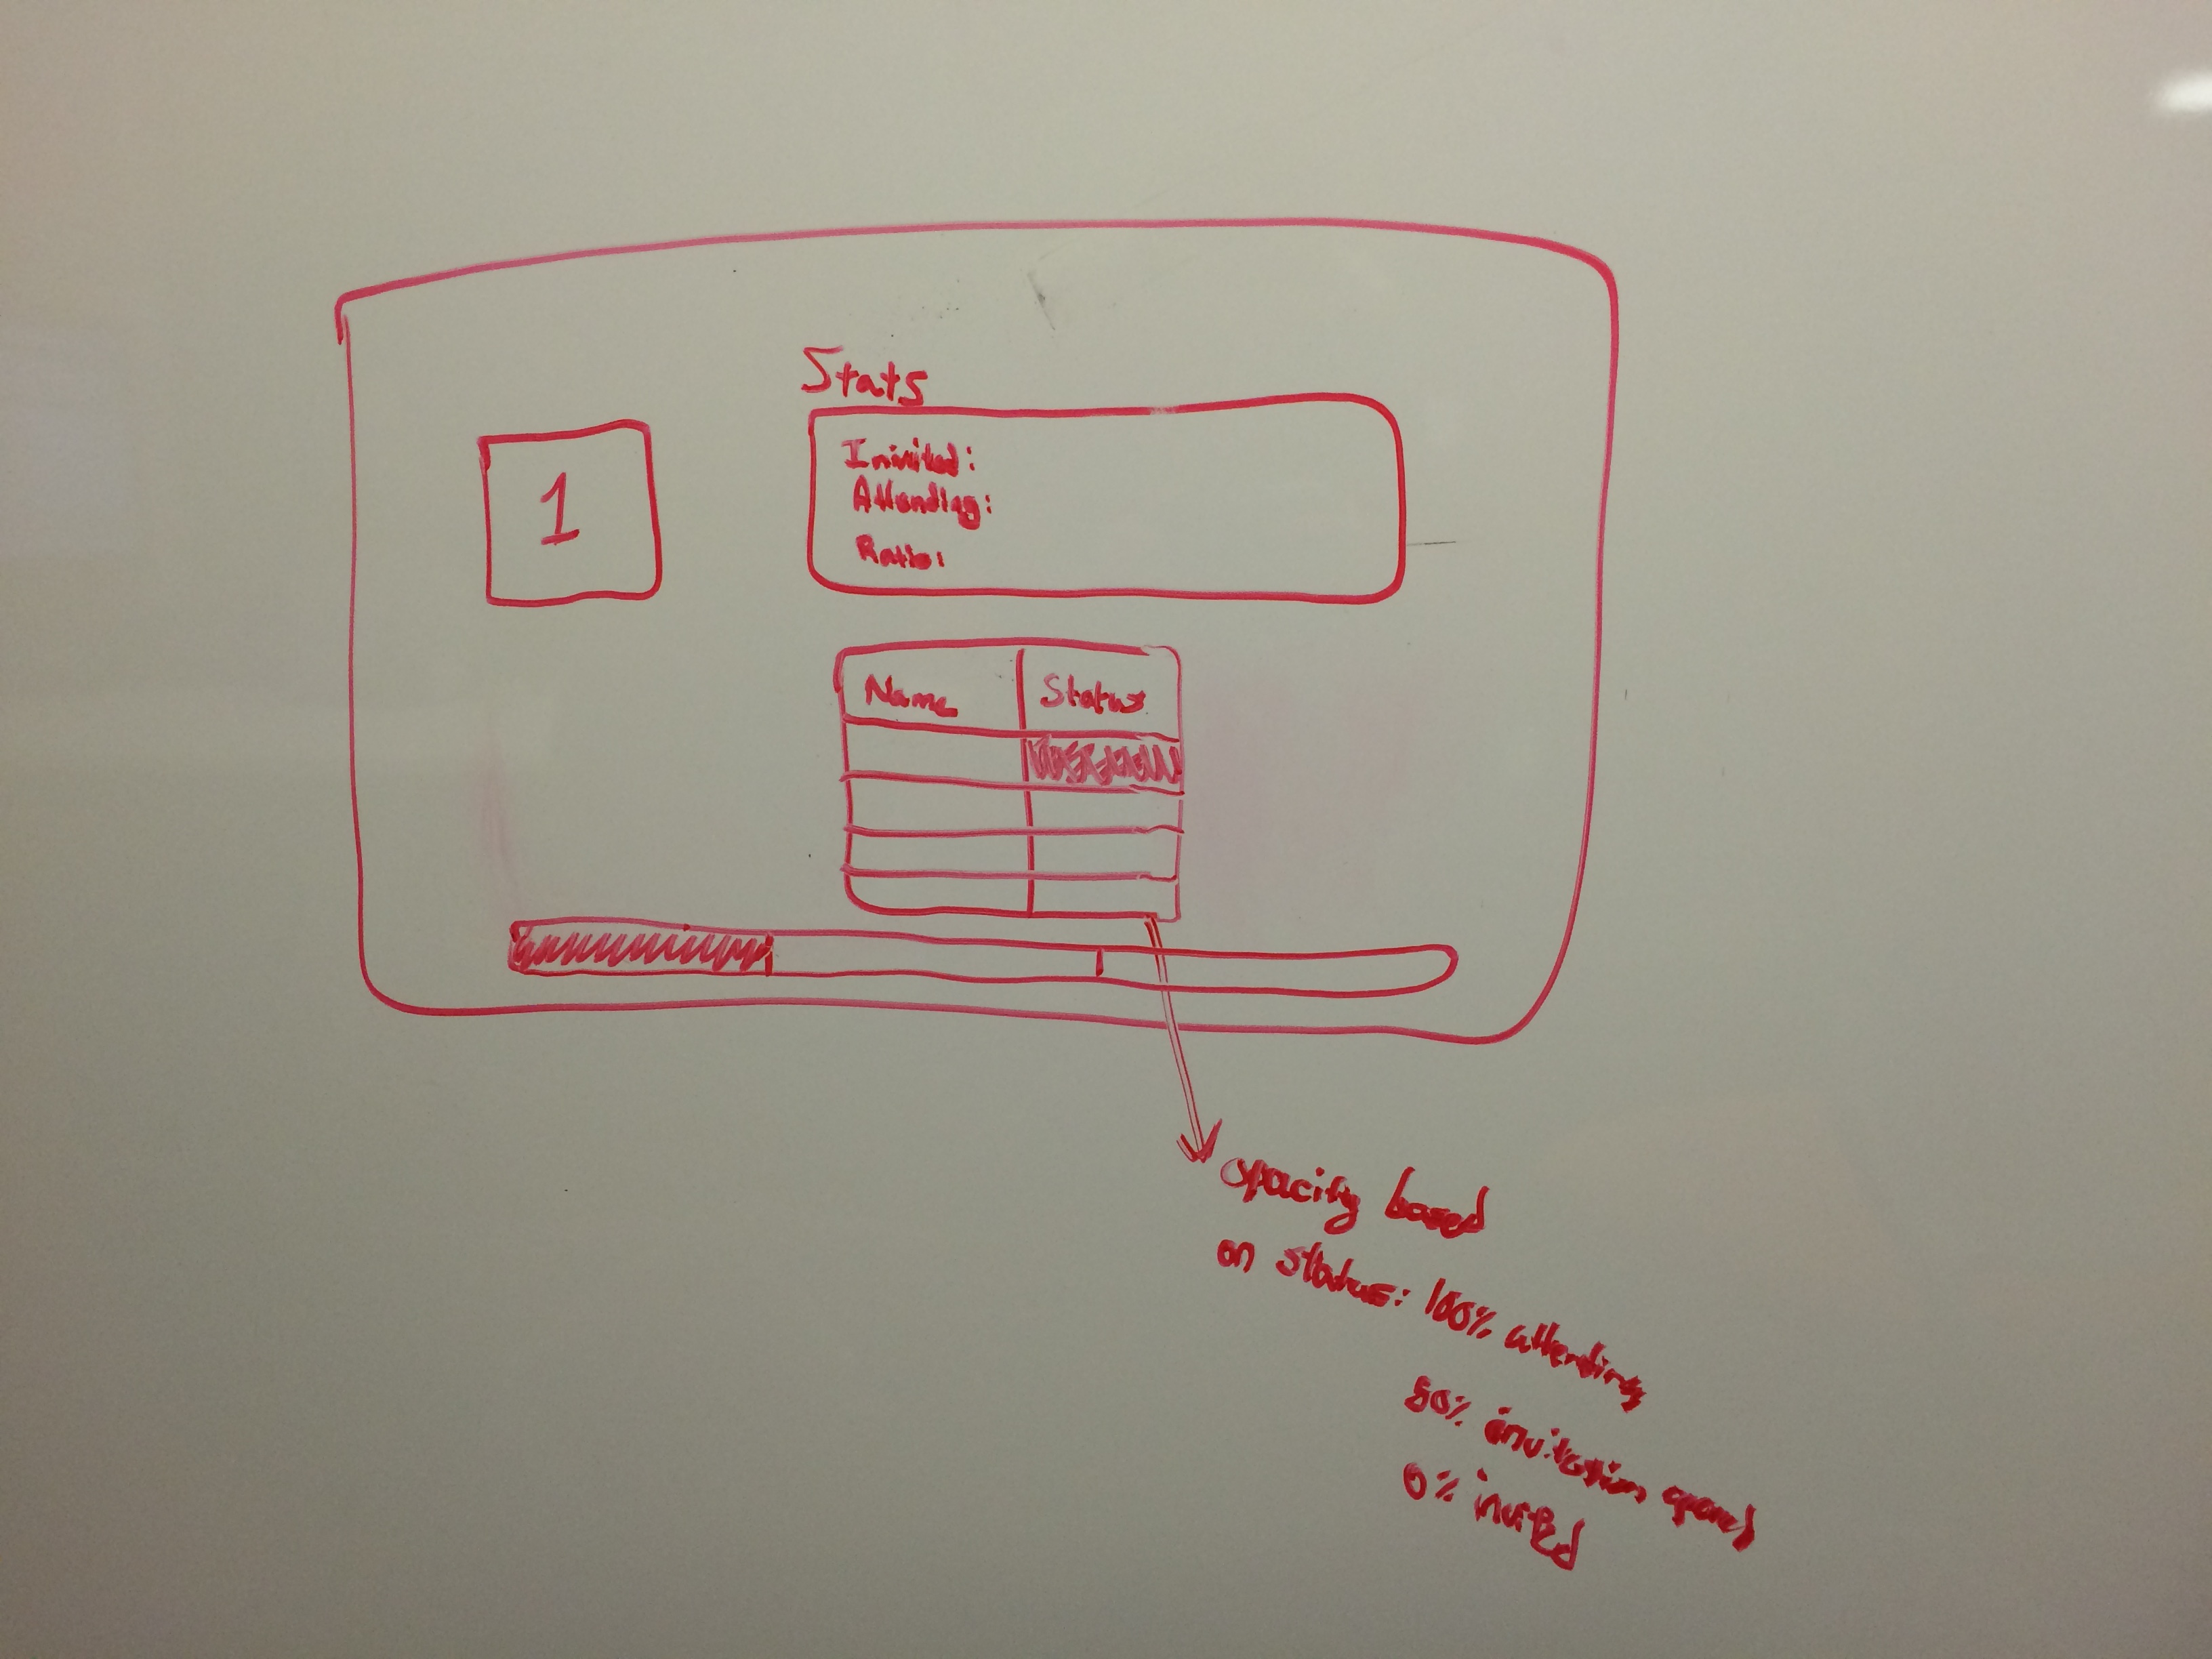 Stats
1
Invited:
Attending:
Ratio:
Name Status
opacity based
on status: 100% attending
50% invitation opened
0% invited